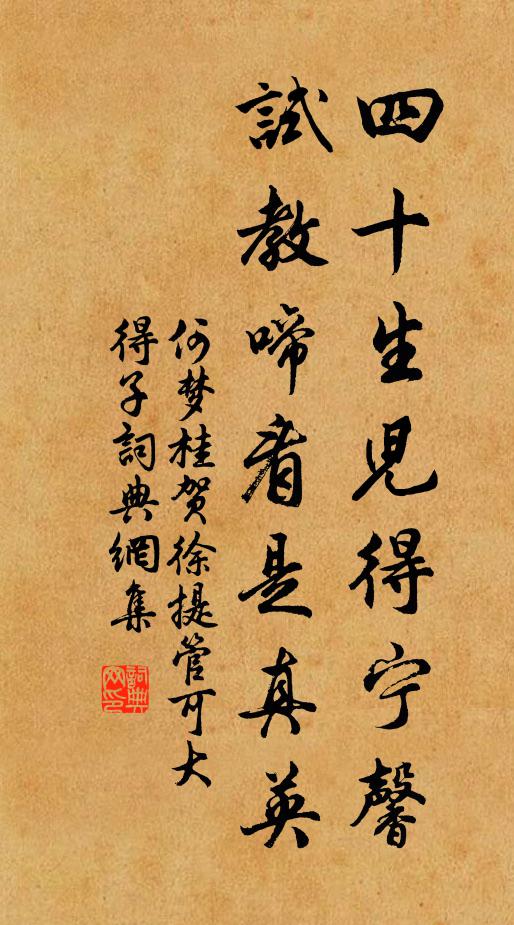 四十生児得宁馨
試教啼看是真英
何梦桂贺徐提管可大
得子詞典網集
詞典网印